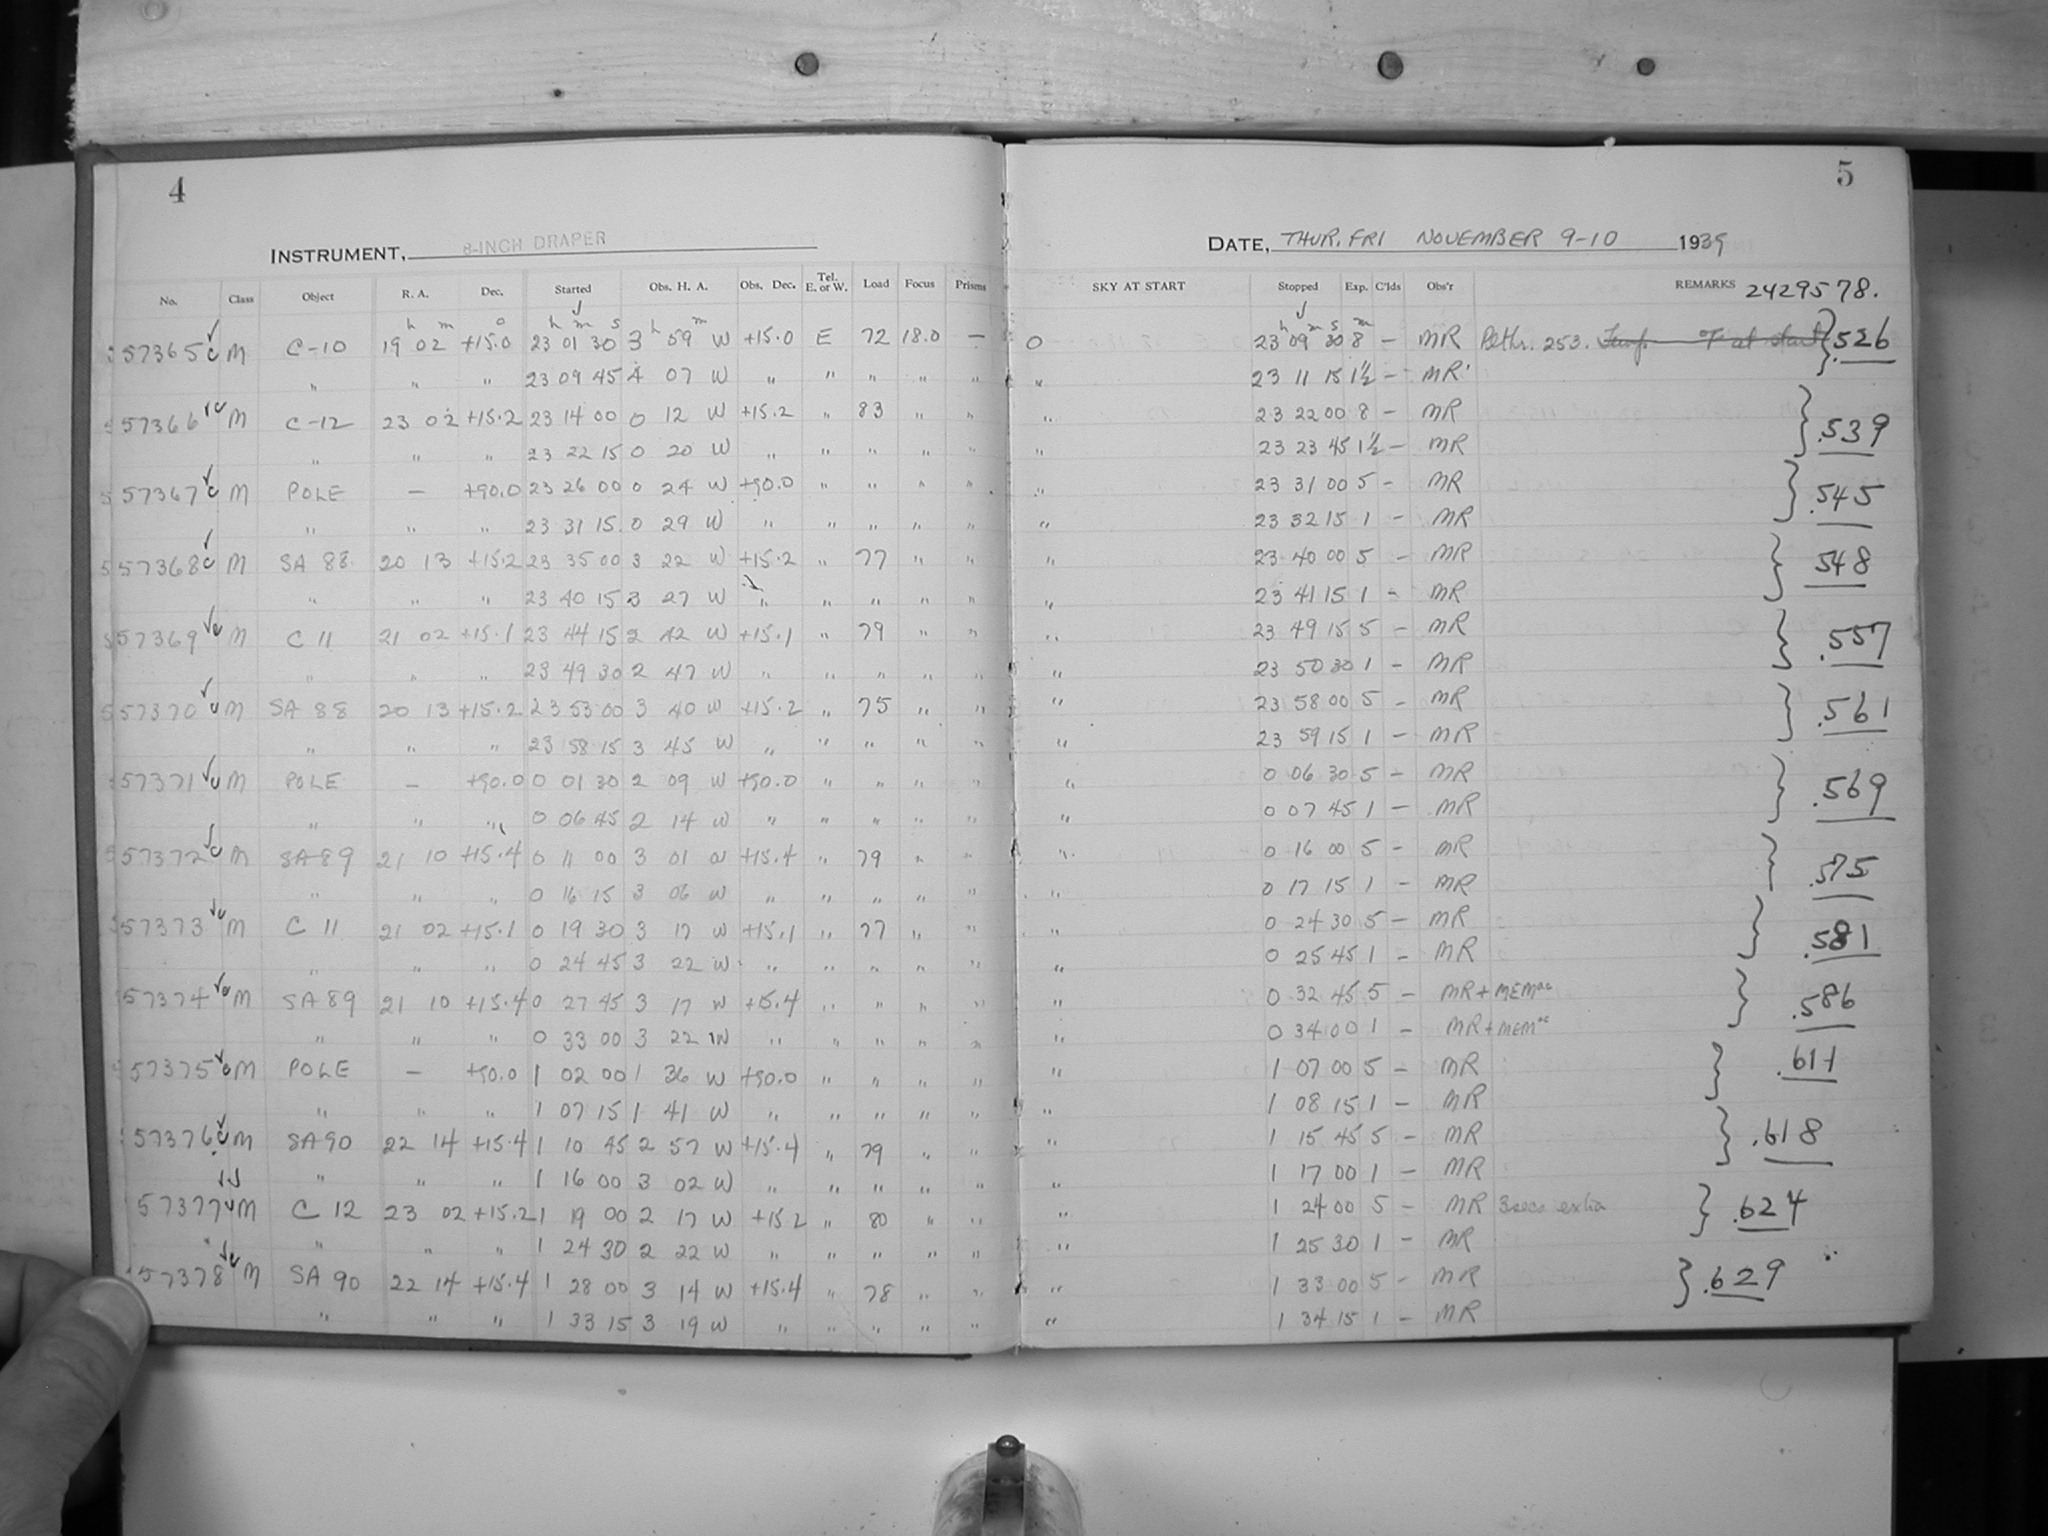 4
INSTRUMENT, 8-INCH DRAPER
No. Class Object R. A. Dec. Started Obs. H. A. Obs. Dec. Tel. E. or W. Load Focus Prisms
h m o h m s h m
57365 c M C-10 19 02 +15.0 23 01 30 3 59 W +15.0 E 72 18.0 —
" " " 23 09 45 4 07 W " " " " "
57366 c M C-12 23 02 +15.2 23 14 00 0 12 W +15.2 " 83 " "
" " " 23 22 15 0 20 W " " " " "
57367 c M POLE — +90.0 23 26 00 0 24 W +90.0 " " " "
" " " 23 31 15 0 29 W " " " " "
57368 c M SA 88 20 13 +15.2 23 35 00 3 22 W +15.2 " 77 " "
" " " 23 40 15 3 27 W " " " " "
57369 c M C 11 21 02 +15.1 23 44 15 2 42 W +15.1 " 79 " "
" " " 23 49 30 2 47 W " " " " "
57370 c M SA 88 20 13 +15.2 23 53 00 3 40 W +15.2 " 75 " "
" " " 23 58 15 3 45 W " " " " "
57371 c M POLE — +90.0 0 01 30 2 09 W +90.0 " " " "
" " " 0 06 45 2 14 W " " " " "
57372 c M SA 89 21 10 +15.4 0 11 00 3 01 W +15.4 " 79 " "
" " " 0 16 15 3 06 W " " " " "
57373 c M C 11 21 02 +15.1 0 19 30 3 17 W +15.1 " 77 " "
" " " 0 24 45 3 22 W " " " " "
57374 c M SA 89 21 10 +15.4 0 27 45 3 17 W +15.4 " " " "
" " " 0 33 00 3 22 W " " " " "
57375 c M POLE — +90.0 1 02 00 1 36 W +90.0 " " " "
" " " 1 07 15 1 41 W " " " " "
57376 c M SA 90 22 14 +15.4 1 10 45 2 57 W +15.4 " 79 " "
" " " 1 16 00 3 02 W " " " " "
57377 c M C 12 23 02 +15.2 1 19 00 2 17 W +15.2 " 80 " "
" " " 1 24 30 2 22 W " " " " "
57378 c M SA 90 22 14 +15.4 1 28 00 3 14 W +15.4 " 78 " "
" " " 1 33 15 3 19 W " " " " "
5
DATE, THUR. FRI NOVEMBER 9-10 1939
SKY AT START Stopped Exp. C'lds Obs'r REMARKS 2429578.
h m s m
0 23 09 30 8 — MR Bethr. 253. Temp. °F at start } .526
" 23 11 15 1½ — MR
" 23 22 00 8 — MR } .539
" 23 23 45 1½ — MR
" 23 31 00 5 — MR } .545
" 23 32 15 1 — MR
" 23 40 00 5 — MR } 548
" 23 41 15 1 — MR
" 23 49 15 5 — MR } .557
" 23 50 30 1 — MR
" 23 58 00 5 — MR } .561
" 23 59 15 1 — MR
" 0 06 30 5 — MR } .569
" 0 07 45 1 — MR
" 0 16 00 5 — MR } .575
" 0 17 15 1 — MR
" 0 24 30 5 — MR } .581
" 0 25 45 1 — MR
" 0 32 45 5 — MR + MEM } .586
" 0 34 00 1 — MR + MEM
" 1 07 00 5 — MR } .611
" 1 08 15 1 — MR
" 1 15 45 5 — MR } .618
" 1 17 00 1 — MR
" 1 24 00 5 — MR 3 secs extra } .624
" 1 25 30 1 — MR
" 1 33 00 5 — MR } .629
" 1 34 15 1 — MR